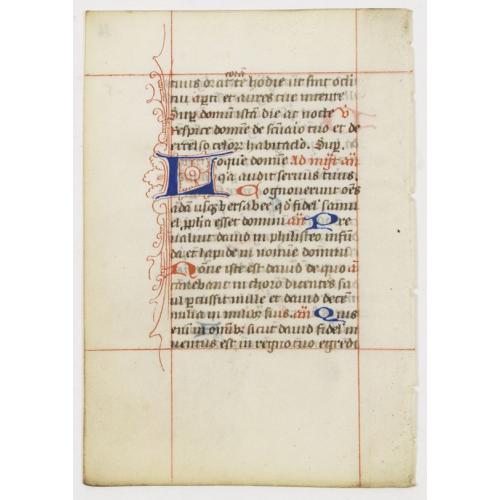 corā
tuus orat te hodie ut sint oculi
tui aperti et aures tue intente
Sup domum istā die ac nocte V
respice domine de scūaio tuo et de
excelso celor habitaclo. Sup.
Loquē domine Ad mīst añ
qa audit seruus tuus.
Cognouerunt oēs
a dan usq bersabee qd fidel samu
el ppha esset domini añ Pre
ualuit dauid in philisteo in fūn
da et lapide in nomine domini
Nōne iste est dauid de quo a
canebant in choro dicentes sa
ul percussit mille et dauid decē
milia in milibus suis. añ Quis
eni in omnibs sicut dauid fidel in
uentus est in regno tuo egredi